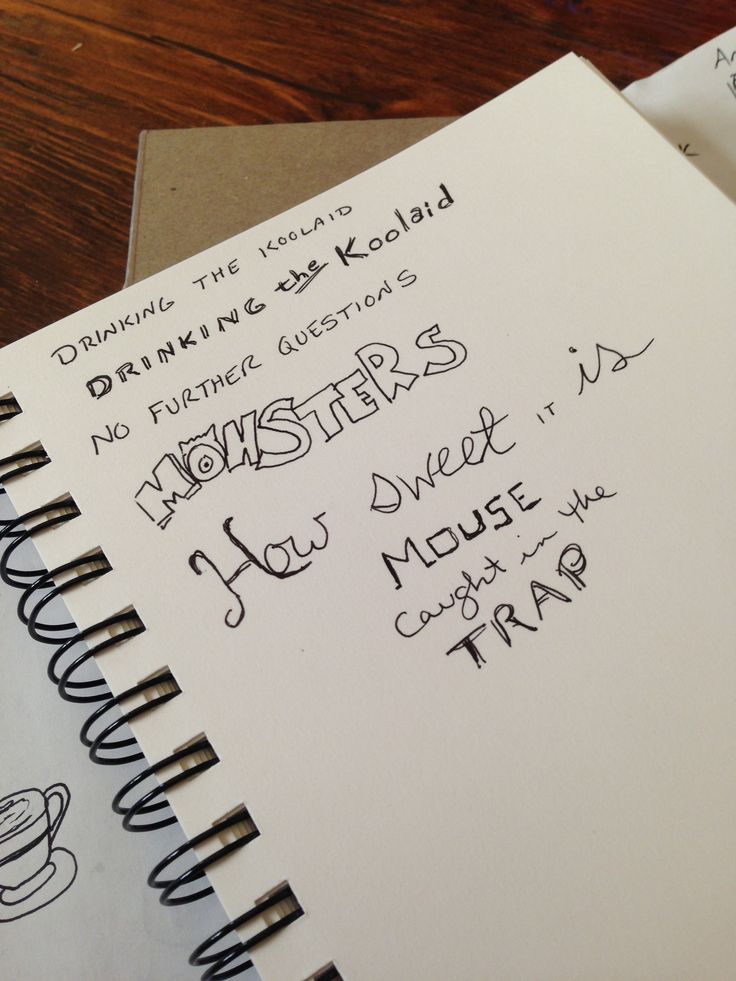 DRINKING THE KOOLAID
DRINKING the Koolaid
NO FURTHER QUESTIONS
MONSTERS
How sweet IT is
MOUSE
caught in the
TRAP